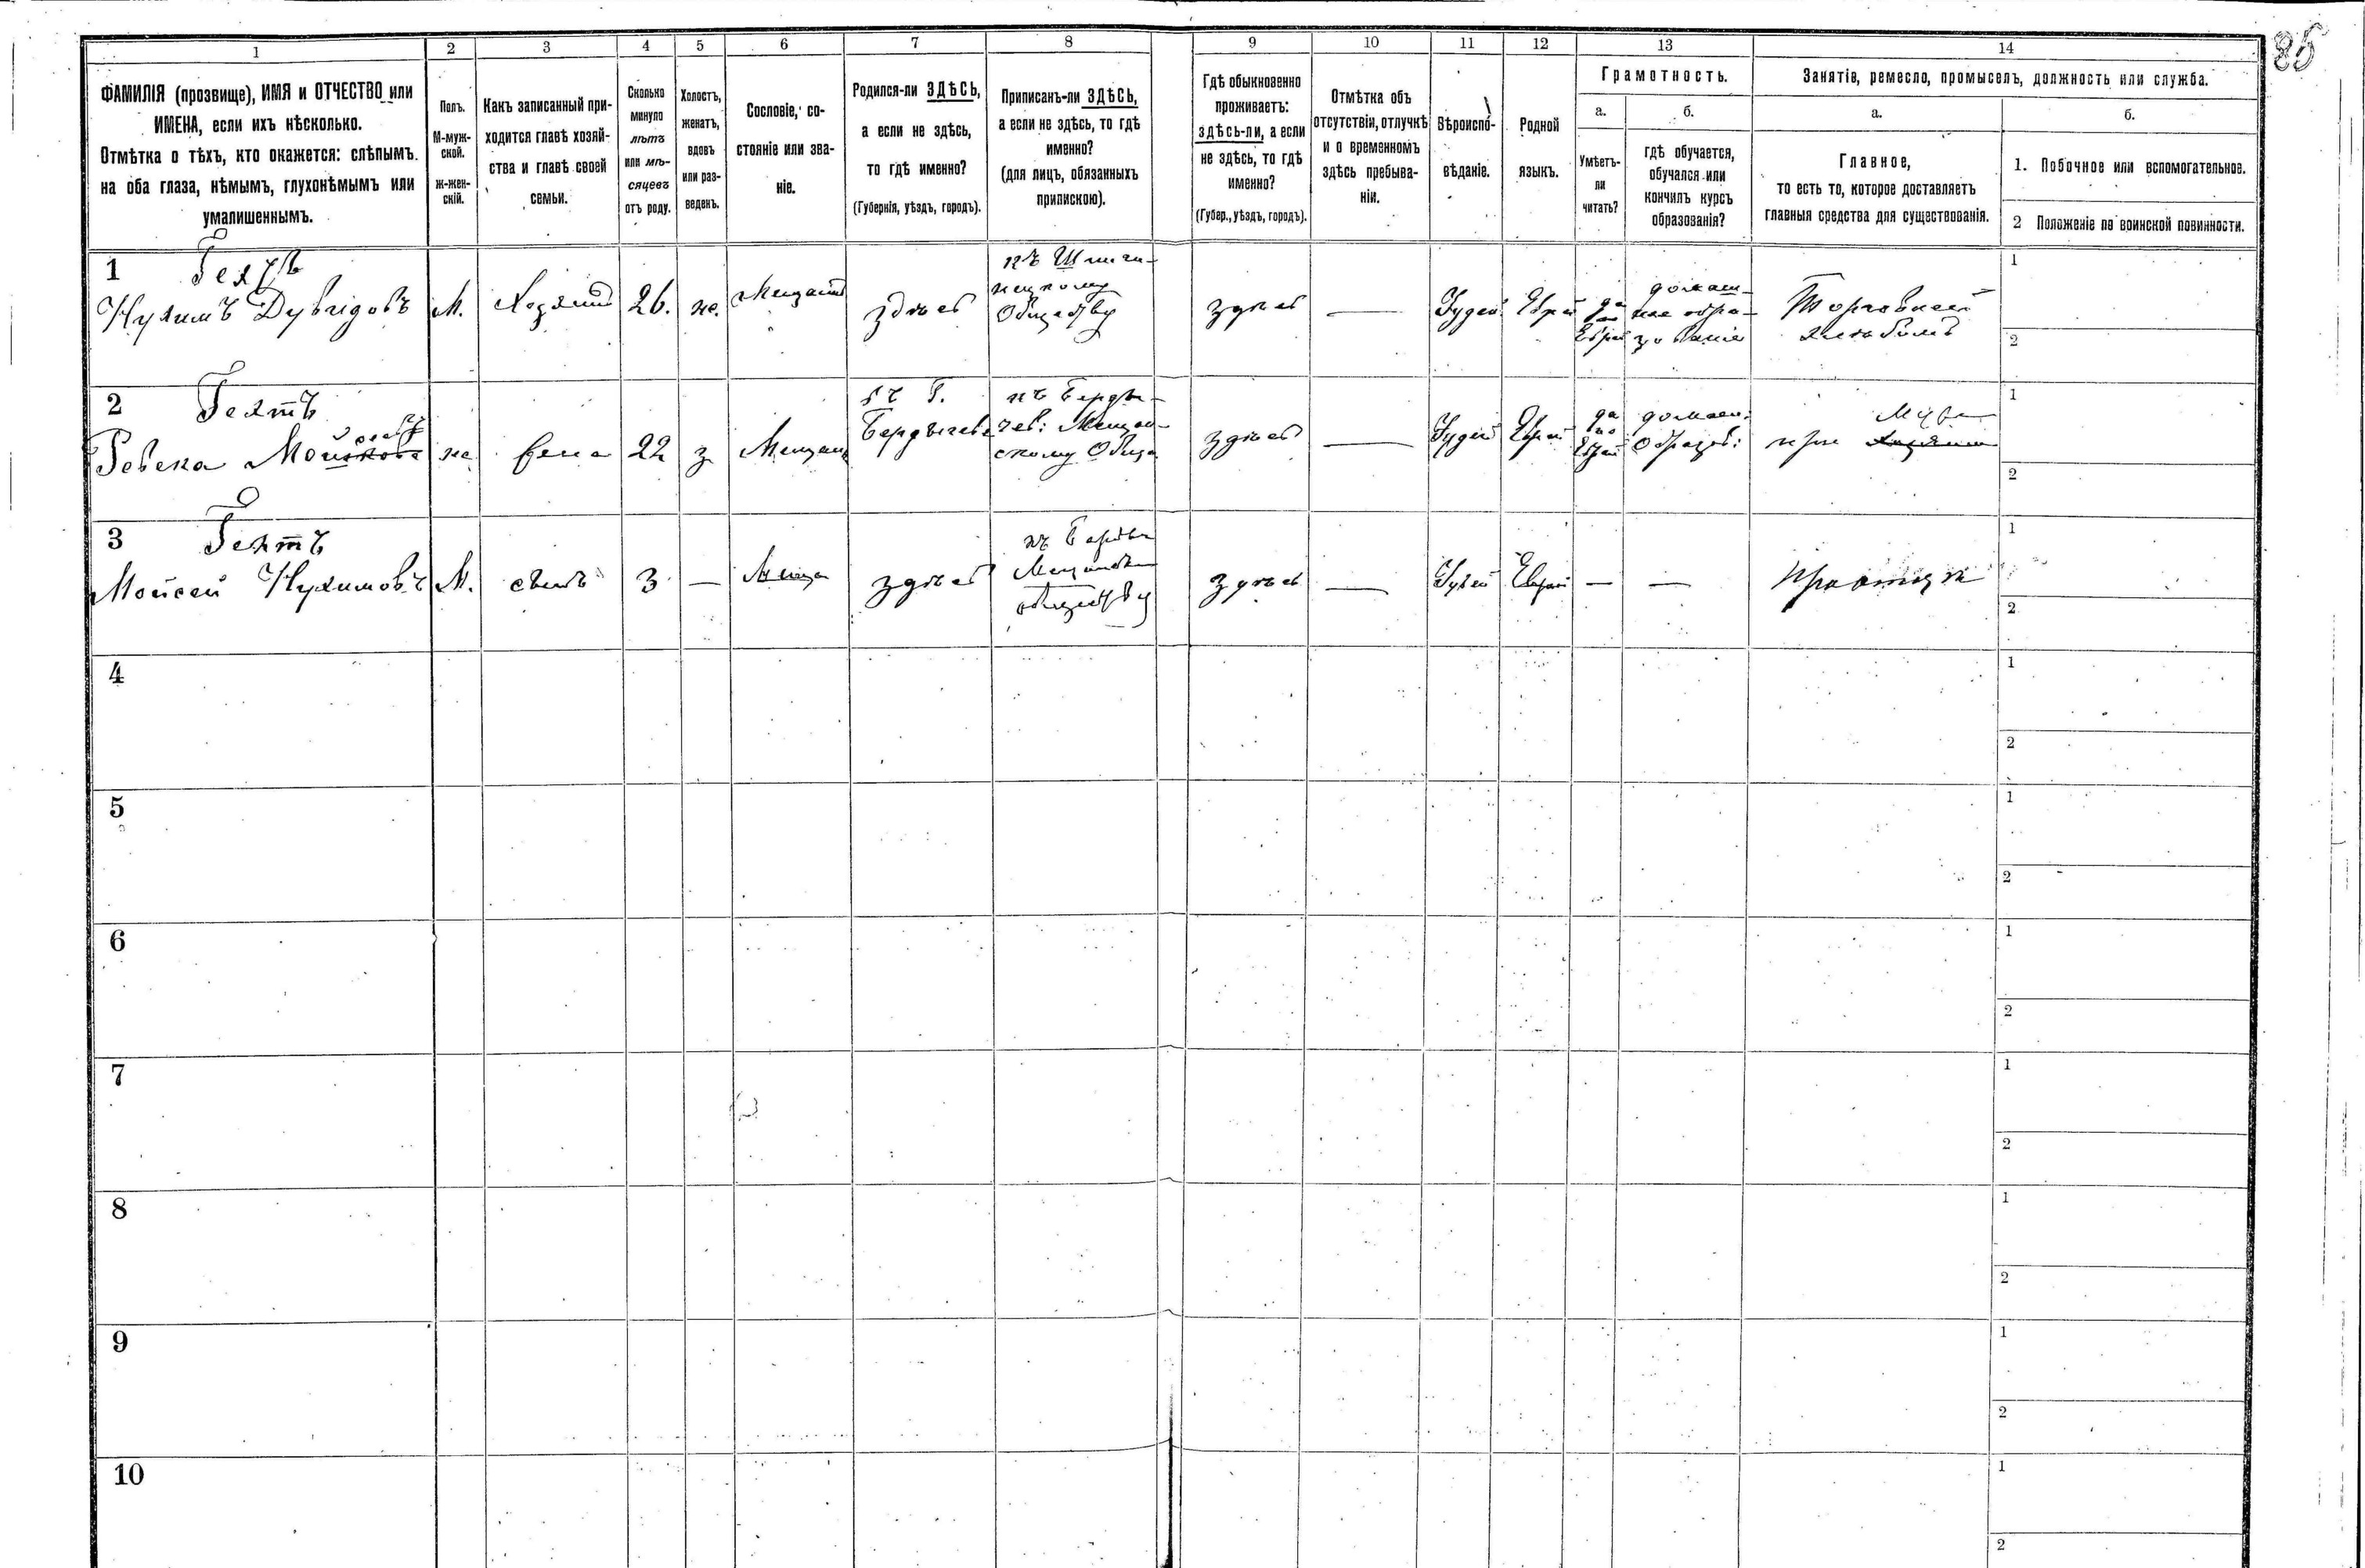 85
1 2 3 4 5 6 7 8 9 10 11 12 13 14
ФАМИЛІЯ (прозвище), ИМЯ и ОТЧЕСТВО или
ИМЕНА, если ихъ нѣсколько.
Отмѣтка о тѣхъ, кто окажется: слѣпымъ.
на оба глаза, нѣмымъ, глухонѣмымъ или
умалишеннымъ.
Полъ.
М-муж-
ской.
ж-жен-
скій.
Какъ записанный при-
ходится главѣ хозяй-
ства и главѣ своей
семьи.
Сколько
минуло
лѣтъ
или мѣ-
сяцевъ
отъ роду.
Холостъ,
женатъ,
вдовъ
или раз-
веденъ.
Сословіе, со-
стояніе или зва-
ніе.
Родился-ли ЗДѢСЬ,
а если не здѣсь,
то гдѣ именно?
(Губернія, уѣздъ, городъ).
Приписанъ-ли ЗДѢСЬ,
а если не здѣсь, то гдѣ
именно?
(для лицъ, обязанныхъ
припискою).
Гдѣ обыкновенно
проживаетъ:
здѣсь-ли, а если
не здѣсь, то гдѣ
именно?
(Губер., уѣздъ, городъ).
Отмѣтка объ
отсутствіи, отлучкѣ
и о временномъ
здѣсь пребыва-
ніи.
Вѣроиспо-
вѣданіе.
Родной
языкъ.
Грамотность.
а.
Умѣетъ-
ли
читать?
б.
гдѣ обучается,
обучался или
кончилъ курсъ
образованія?
Занятіе, ремесло, промыселъ, должность или служба.
а.
Главное,
то есть то, которое доставляетъ
главныя средства для существованія.
б.
1. Побочное или вспомогательное.
2 Положеніе по воинской повинности.
1 Гехтъ
Нухимъ Дувидовъ
М.
Хозяинъ
26.
же.
Мещанинъ
здѣсь
Обществу
здѣсь
—
Іудей
Еврей
да
Еврей
домаш-
нее обра-
зованіе
Торговлей
1
2
2 Гехтъ
Ревека Мойсеев
же
жена
22
з
Мещан
въ Г.
Бердичевѣ
къ Берди-
чев: Мещан-
скому Общ
здѣсь
—
Іудей
Еврей
да
по
Еврей
домаш:
образов:
при Мужѣ
1
2
3 Гехтъ
Мойсей Нухимовъ
М.
сынъ
3
—
Меща
здѣсь
къ Берди
Мещанск
обществу
здѣсь
—
Іудей
Еврей
—
—
При отцѣ
1
2
4
1
2
5
1
2
6
1
2
7
1
2
8
1
2
9
1
2
10
1
2